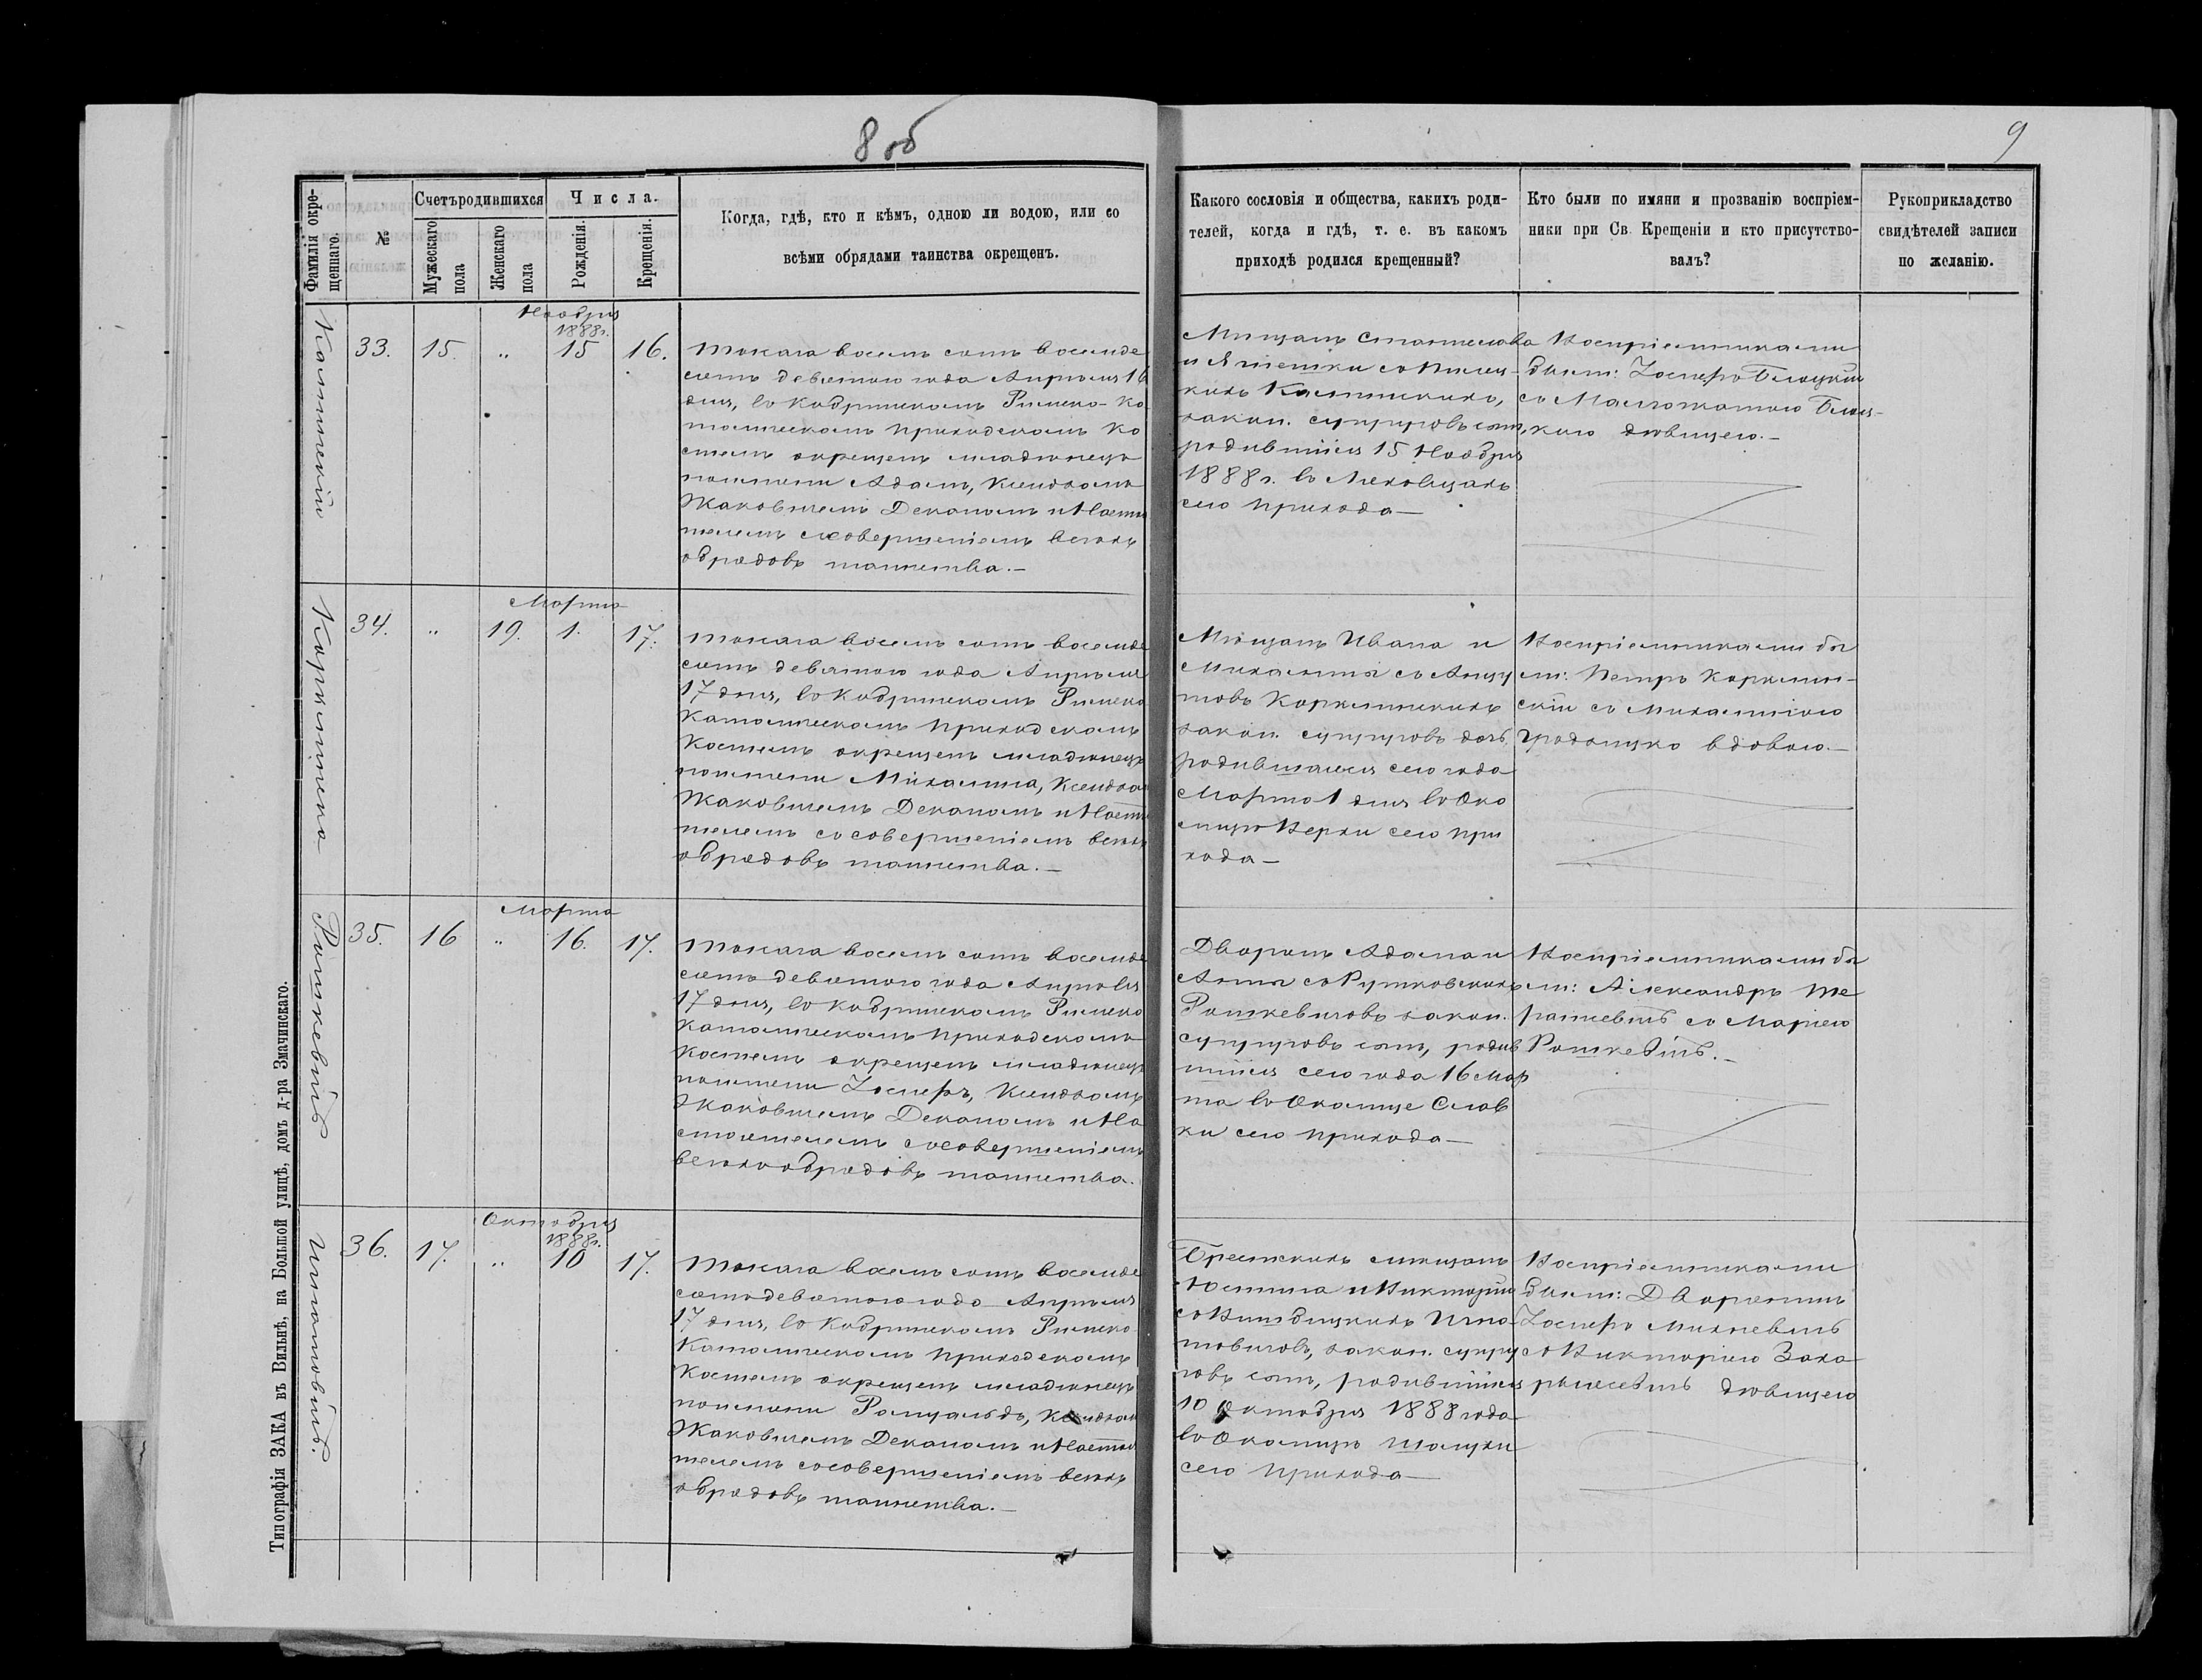 8 об
9
Фамилія окре-
щеннаго.
№
Счетъ родившихся
Мужескаго
пола
Женскаго
пола
Числа.
Рожденія.
Крещенія.
Когда, гдѣ, кто и кѣмъ, одною ли водою, или со
всѣми обрядами таинства окрещенъ.
Какого сословія и общества, какихъ роди-
телей, когда и гдѣ, т. е. въ какомъ
приходѣ родился крещенный?
Кто были по имяни и прозванію воспріем-
ники при Св. Крещеніи и кто присутство-
валъ?
Рукоприкладство
свидѣтелей записи
по желанію.
33. 15. „ Ноября
1888г.
15 16.
Тысяча восемь сотъ восемьде
сятъ девятого года Апрѣля 16
дня, въ Кобринскомъ Римско-Ка
толическомъ приходскомъ Ко
стелѣ окрещенъ младенецъ
поимени Адамъ, Ксендзомъ
Жаковичемъ Деканомъ и Насто
телемъ съ совершеніемъ всѣхъ
обрядовъ таинства.—
Мѣщанъ Станислава
закон. супруговъ сынъ,
родившійся 15 Ноября
1888 г. въ
сего прихода—
Воспріемниками
были:
со
дѣвицею.—
34. „ 19. Марта
1. 17.
Тысяча восемь сотъ восемьде
сятъ девятого года Апрѣля
17 дня, въ Кобринскомъ Римско
Католическомъ приходскомъ
Костелѣ окрещенъ младенецъ
поимени Михалина, Ксендзом
Жаковичемъ Деканомъ и Насто
телемъ съ совершеніемъ всѣхъ
обрядовъ таинства.—
Мѣщанъ Ивана и
Михалины съ
закон. супруговъ дочь,
родившаяся сего года
Марта 1 дня въ Око
лицѣ Верхи сего при
хода—
Воспріемниками бы
ли: Петръ
скій съ Михалиною
вдовою.—
Рашкевичъ
35. 16 „ Марта
16. 17.
Тысяча восемь сотъ восемьде
сятъ девятого года Апрѣля
17 дня, въ Кобринскомъ Римско
Католическомъ приходскомъ
Костелѣ окрещенъ младенецъ
поимени Іосифъ, Ксендзомъ
Жаковичемъ Деканомъ и На
стоятелемъ съ совершеніемъ
всѣхъ обрядовъ таинства.
Дворянъ Адама и
Анны съ Рутковскихъ
Рашкевичовъ закон.
супруговъ сынъ, родив
шійся сего года 16 Мар
та въ Околице
сего прихода—
Воспріемниками бы
ли: Александръ
съ Маріею
Рашкевичъ.—
36. 17. „ Октября
1888г.
10 17.
Тысяча восемь сотъ восемьде
сятъ девятого года Апрѣля
17 дня, въ Кобринскомъ Римско
Католическомъ приходскомъ
Костелѣ окрещенъ младенецъ
поимени Ромуальдъ, Ксендзом
Жаковичемъ Деканомъ и Насто
телемъ съ совершеніемъ всѣхъ
обрядовъ таинства.—
Брестскихъ мѣщанъ
Юстина и Викторіи
закон. супру
говъ сынъ, родившійся
10 Октября 1888 года
въ Околицѣ
сего прихода—
Воспріемниками
были: Дворянинъ
Іосифъ
съ Викторіею
дѣвицею
Типографія ЗАКА въ Вильнѣ, на Большой улицѣ, домъ д-ра Змачинскаго.